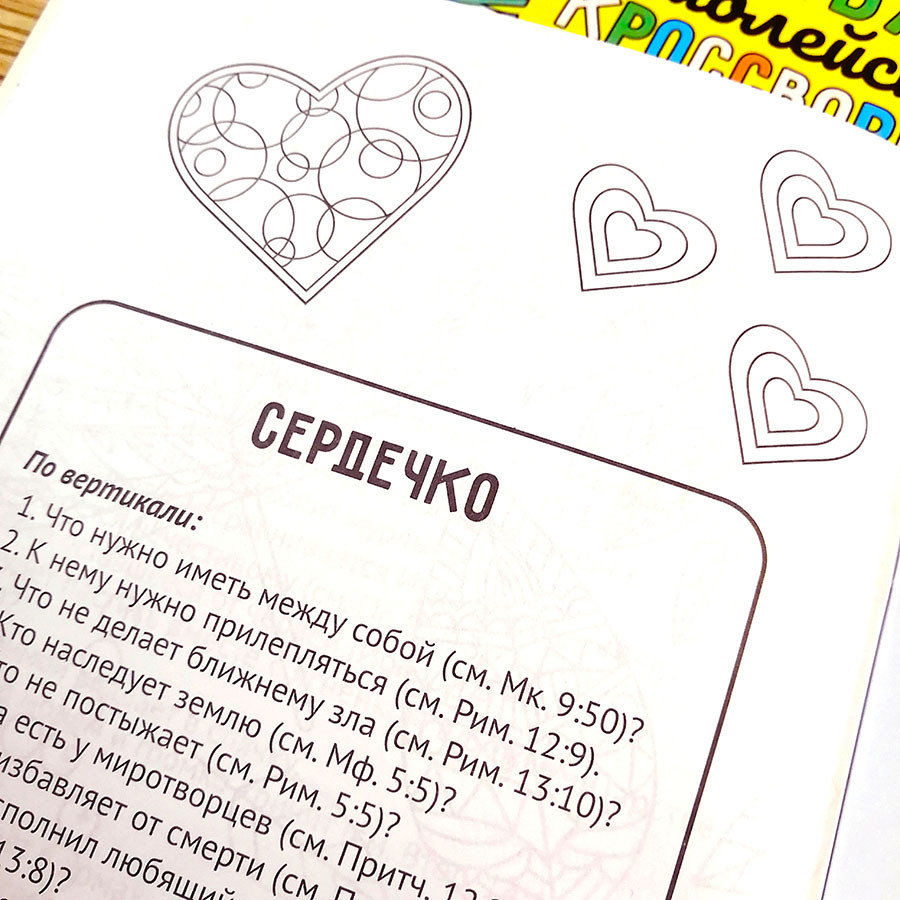 КРОССВОРД
СЕРДЕЧКО
По вертикали:
1. Что нужно иметь между собой (см. Мк. 9:50)?
2. К нему нужно прилепляться (см. Рим. 12:9).
Что не делает ближнему зла (см. Рим. 13:10)?
Кто наследует землю (см. Мф. 5:5)?
не постыжает (см. Рим. 5:5)?
есть у миротворцев (см. Притч. 12
избавляет от смерти (см.
любящий
13:8)?